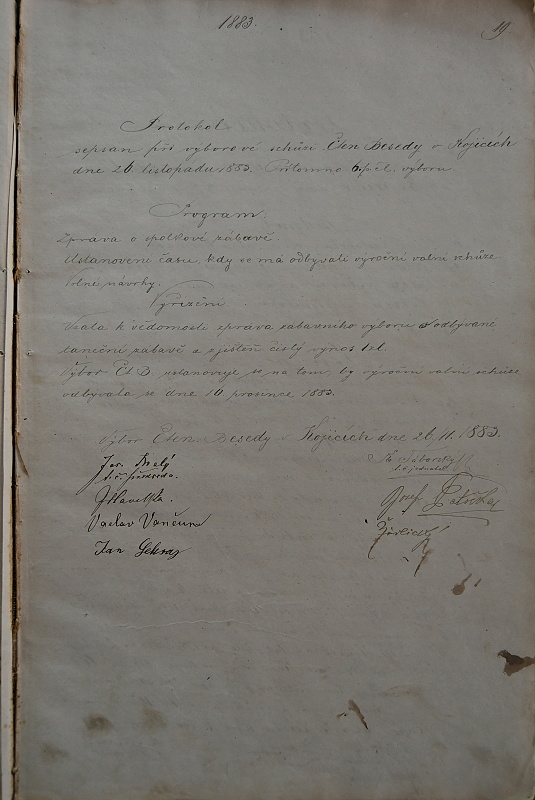 1883.
19
Protokol
sepsan při výborové schůzi Čten. Besedy v Kojicích
dne 26 listopadu 1883. Přítomno 6 čl. výboru.
Program.
Zpráva o spolkové zábavě.
Ustanovení času, kdy se má odbývati výroční valní schůze.
Volné návrhy.
Vyřízení
Vzala k vědomosti zpráva zábavního výboru o odbývané
taneční zábavě a zjištěn čistý výnos 1 zl.
Výbor Čt. B. ustanovuje se na tom, by výroční valní schůze
odbývala se dne 16 prosence 1883.
Výbor Čten. Besedy v Kojicích dne 26./11. 1883.
Jos. Bělý
J. Havelka.
Václav Vančura
Jan
Josef